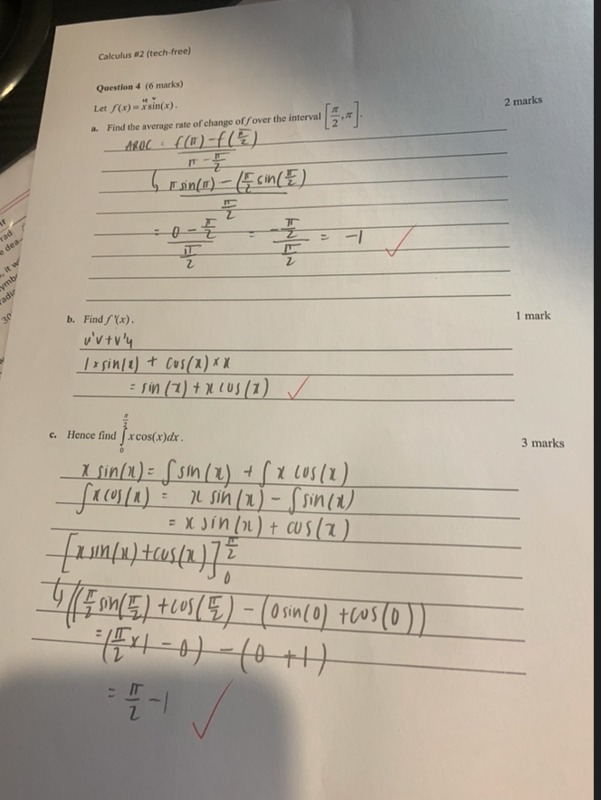 Calculus #2 (tech-free)
Question 4 (6 marks)
Let f(x) = x sin(x).
a. Find the average rate of change of f over the interval [π/2, π].
2 marks
AROC : (f(π) - f(π/2)) / (π - π/2)
↳ (π sin(π) - (π/2 sin(π/2)) / (π/2)
= (0 - π/2) / (π/2) = (-π/2) / (π/2) = -1 ✓
b. Find f'(x).
1 mark
u'v + v'u
1 × sin(x) + cos(x) × x
= sin(x) + x cos(x) ✓
c. Hence find ∫₀^(π/2) x cos(x) dx.
3 marks
x sin(x) = ∫ sin(x) + ∫ x cos(x)
∫ x cos(x) = x sin(x) - ∫ sin(x)
= x sin(x) + cos(x)
[x sin(x) + cos(x)]₀^(π/2)
↳ ((π/2 sin(π/2) + cos(π/2) - (0 sin(0) + cos(0))
= (π/2 × 1 - 0) - (0 + 1)
= π/2 - 1 ✓